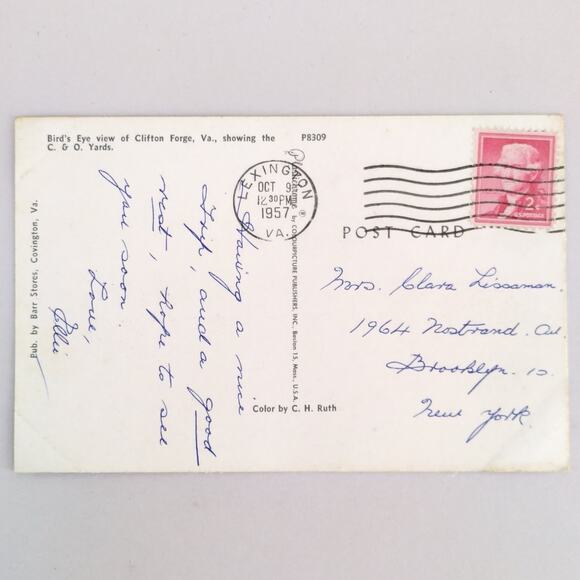 Bird's Eye view of Clifton Forge, Va., showing the
C. & O. Yards.
P8309
Pub. by Barr Stores, Covington, Va.
Having a nice
trip, and a good
rest, hope to see
you soon.
Love,
Ellie
Plastichrome ® by COLOURPICTURE PUBLISHERS, INC., Boston 15, Mass., U.S.A.
Color by C. H. Ruth
LEXINGTON
OCT 9
12 30 PM
1957
VA.
2¢
U.S. POSTAGE
POST CARD
Mrs. Clara Lissaman
1964 Nostrand Ave
Brooklyn 10.
New York.